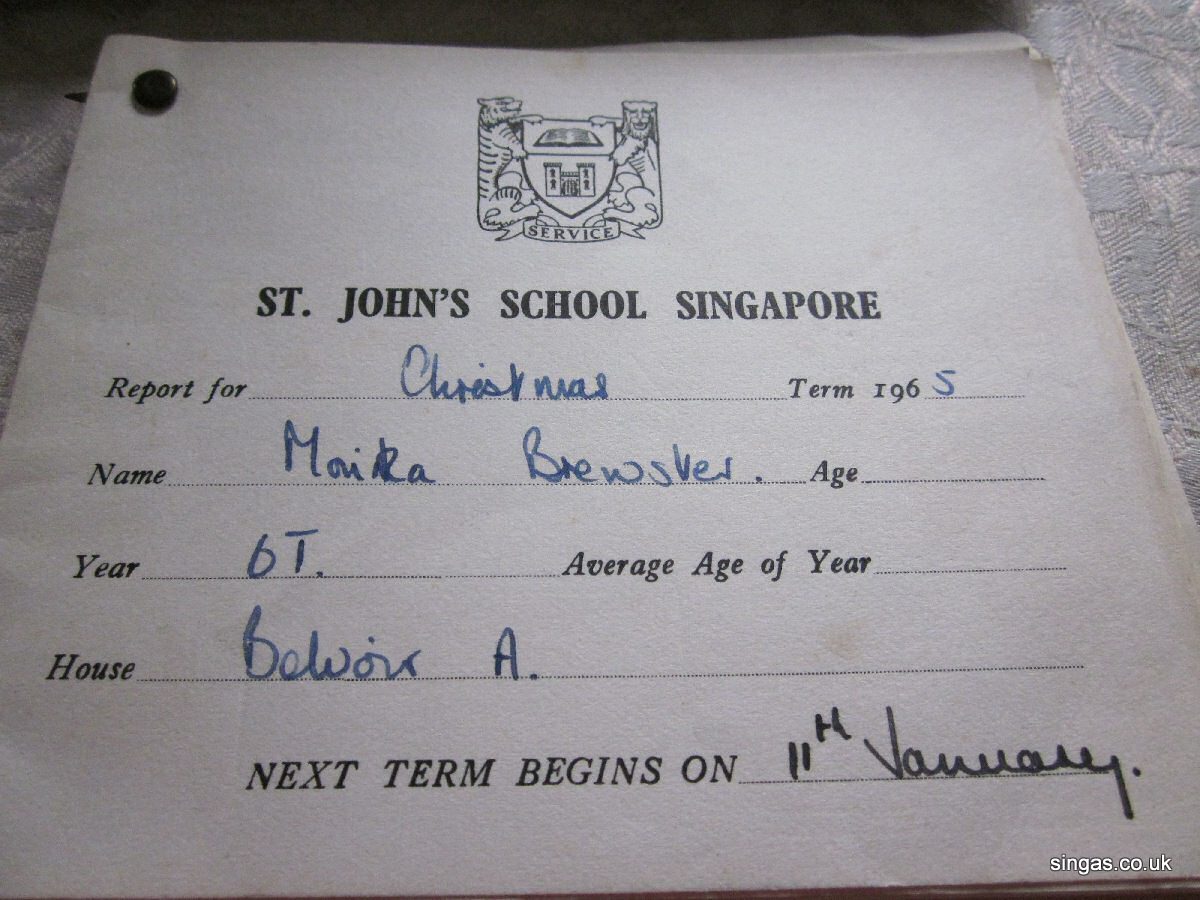 SERVICE
ST. JOHN'S SCHOOL SINGAPORE
Report for Christmas Term 1965
Name Monika Brewster. Age
Year 6T. Average Age of Year
House Belvoir A.
NEXT TERM BEGINS ON 11TH January.
singas.co.uk